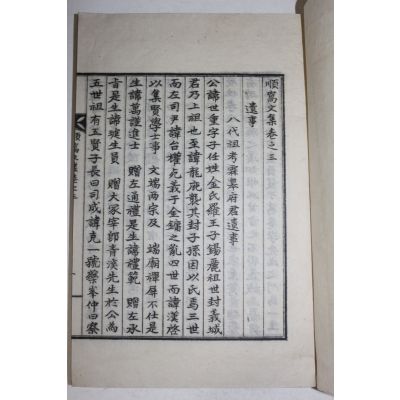 順窩文集卷之三
遺事
八代祖考霖皋府君遺事
公諱世重字子任姓金氏羅王子錫麗祖世封義城
君乃上祖也至諱龍庇襲其封子孫因以氏焉三世
而左司尹諱台權克義于金鏞之亂四世而諱漢啓
以集賢學士事 文端兩宗及 端廟禪屏不仕是
生諱萬謹進士 贈左通禮是生諱禮範 贈左承
旨是生諱璡生員 贈大冢宰郎青溪先生於公為
五世祖有五賢子長曰司成諱克一號藥峯仲曰察
順窩文集卷之三